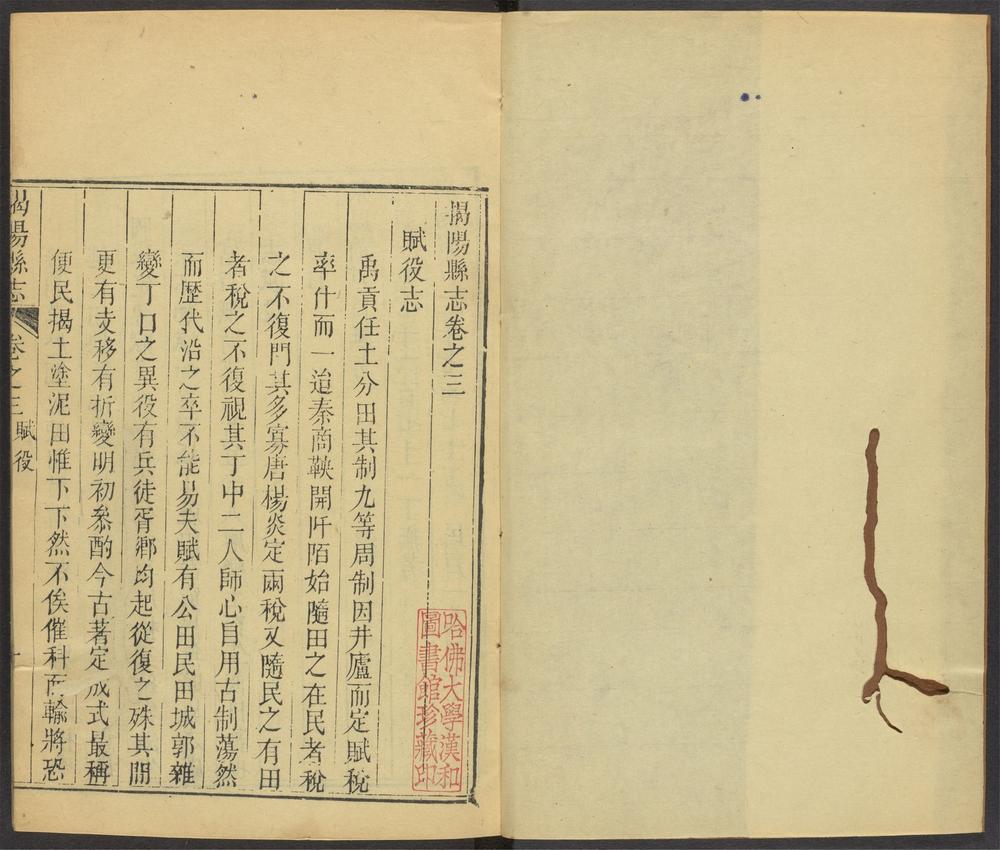 揭陽縣志卷之三
賦役志
禹貢任土分田其制九等周制因井廬而定賦稅
率什而一迨秦商鞅開阡陌始隨田之在民者稅
之不復問其多寡唐楊炎定兩稅又隨民之有田
者稅之不復視其丁中二人師心自用古制蕩然
而歷代沿之卒不能易夫賦有公田民田城郭雜
變丁口之異役有兵徒胥鄉均起從復之殊其間
更有支移有折變明初叅酌今古著定成式最稱
便民揭土塗泥田惟下下然不俟催科而輸將恐
揭陽縣志
卷之三賦役
一
哈佛大學漢和
圖書館珍藏印